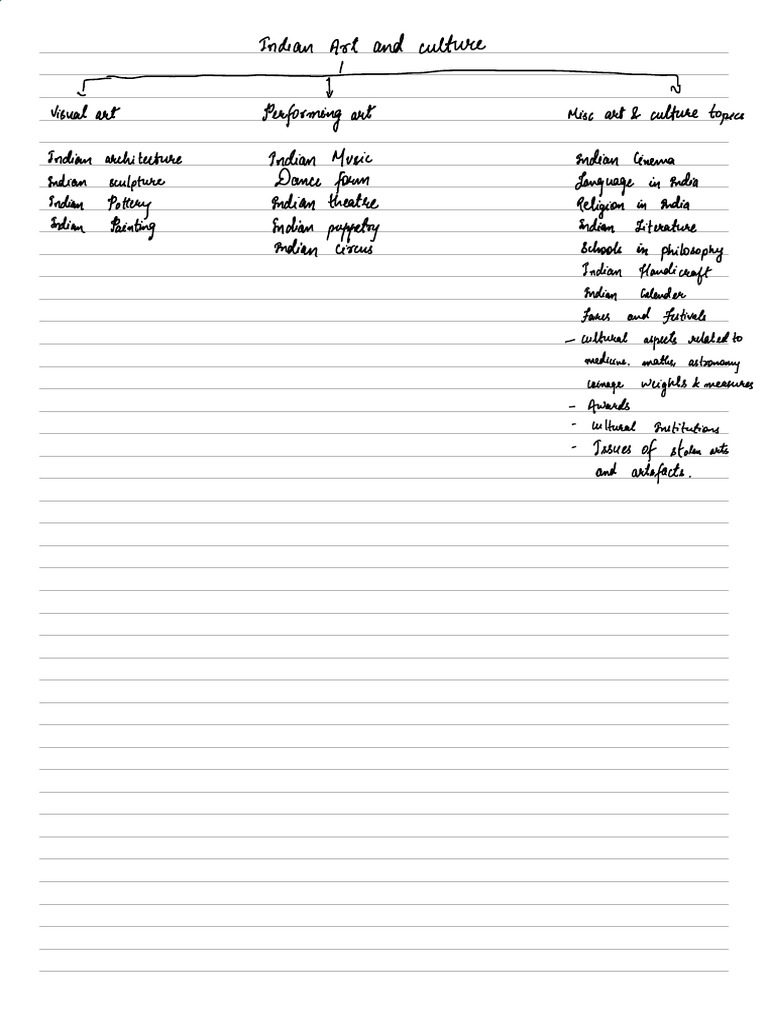 Indian Art and culture
Visual art
Indian architecture
Indian sculpture
Indian Pottery
Indian Painting
Performing art
Indian Music
Dance form
Indian theatre
Indian puppetry
Indian circus
Misc art & culture topics
Indian Cinema
Language in India
Religion in India
Indian Literature
Schools in philosophy
Indian Handicraft
Indian Calender
Faires and Festivals
- cultural aspects related to
medicine, maths, astronomy
coinage weights & measures
- Awards
- cultural Institutions
- Issues of stolen arts
and artefacts.